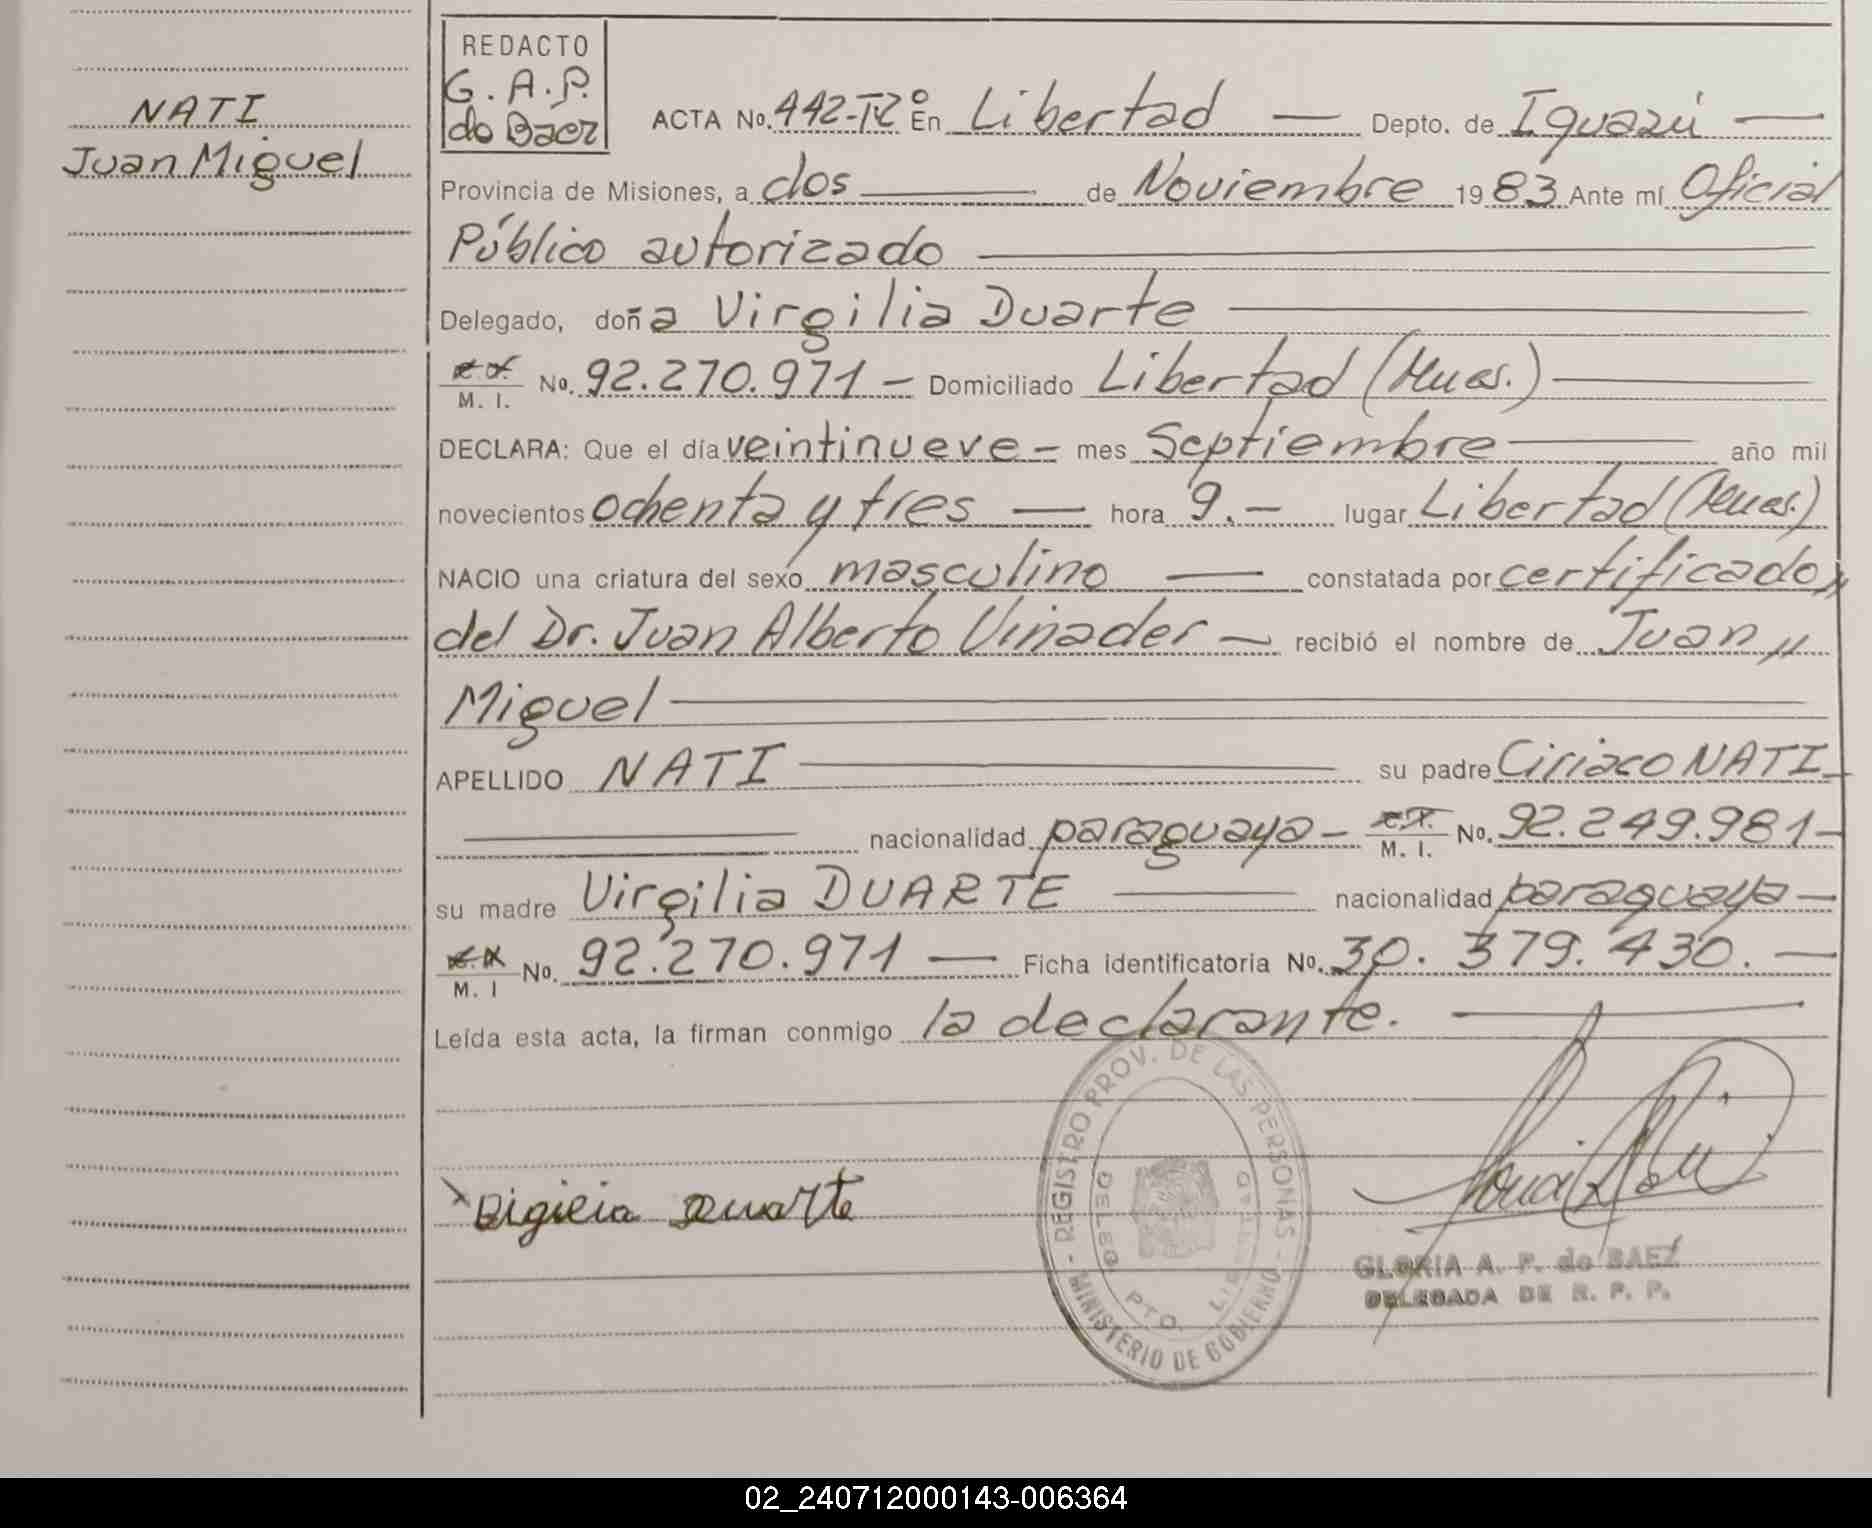 NATI
Juan Miguel
REDACTO
G. A. P.
de Baez
ACTA No. 442-Tº2º En Libertad — Depto. de Iguazú —
Provincia de Misiones, a dos — de Noviembre 1983 Ante mí Oficial
Público autorizado —
Delegado, doña Virgilia Duarte —
M. I. No. 92.270.971 — Domiciliado Libertad (Mnes.) —
DECLARA: Que el día veintinueve — mes Septiembre — año mil
novecientos ochenta y tres — hora 9. — lugar Libertad (Mnes.)
NACIO una criatura del sexo masculino — constatada por certificado,,
del Dr. Juan Alberto Viñader — recibió el nombre de Juan,,
Miguel —
APELLIDO NATI — su padre Ciriaco NATI —
— nacionalidad paraguaya — M. I. No. 92.249.981 —
su madre Virgilia DUARTE — nacionalidad paraguaya —
M. I No. 92.270.971 — Ficha identificatoria No. 30.379.430. —
Leída esta acta, la firman conmigo la declarante. —
REGISTRO PROV. DE LAS PERSONAS - MINISTERIO DE GOBIERNO -
DELEG. PTO. LIBERTAD
Bigilia Duarte
GLORIA A. P. de BAEZ
DELEGADA DE R. P. P.
02_240712000143-006364